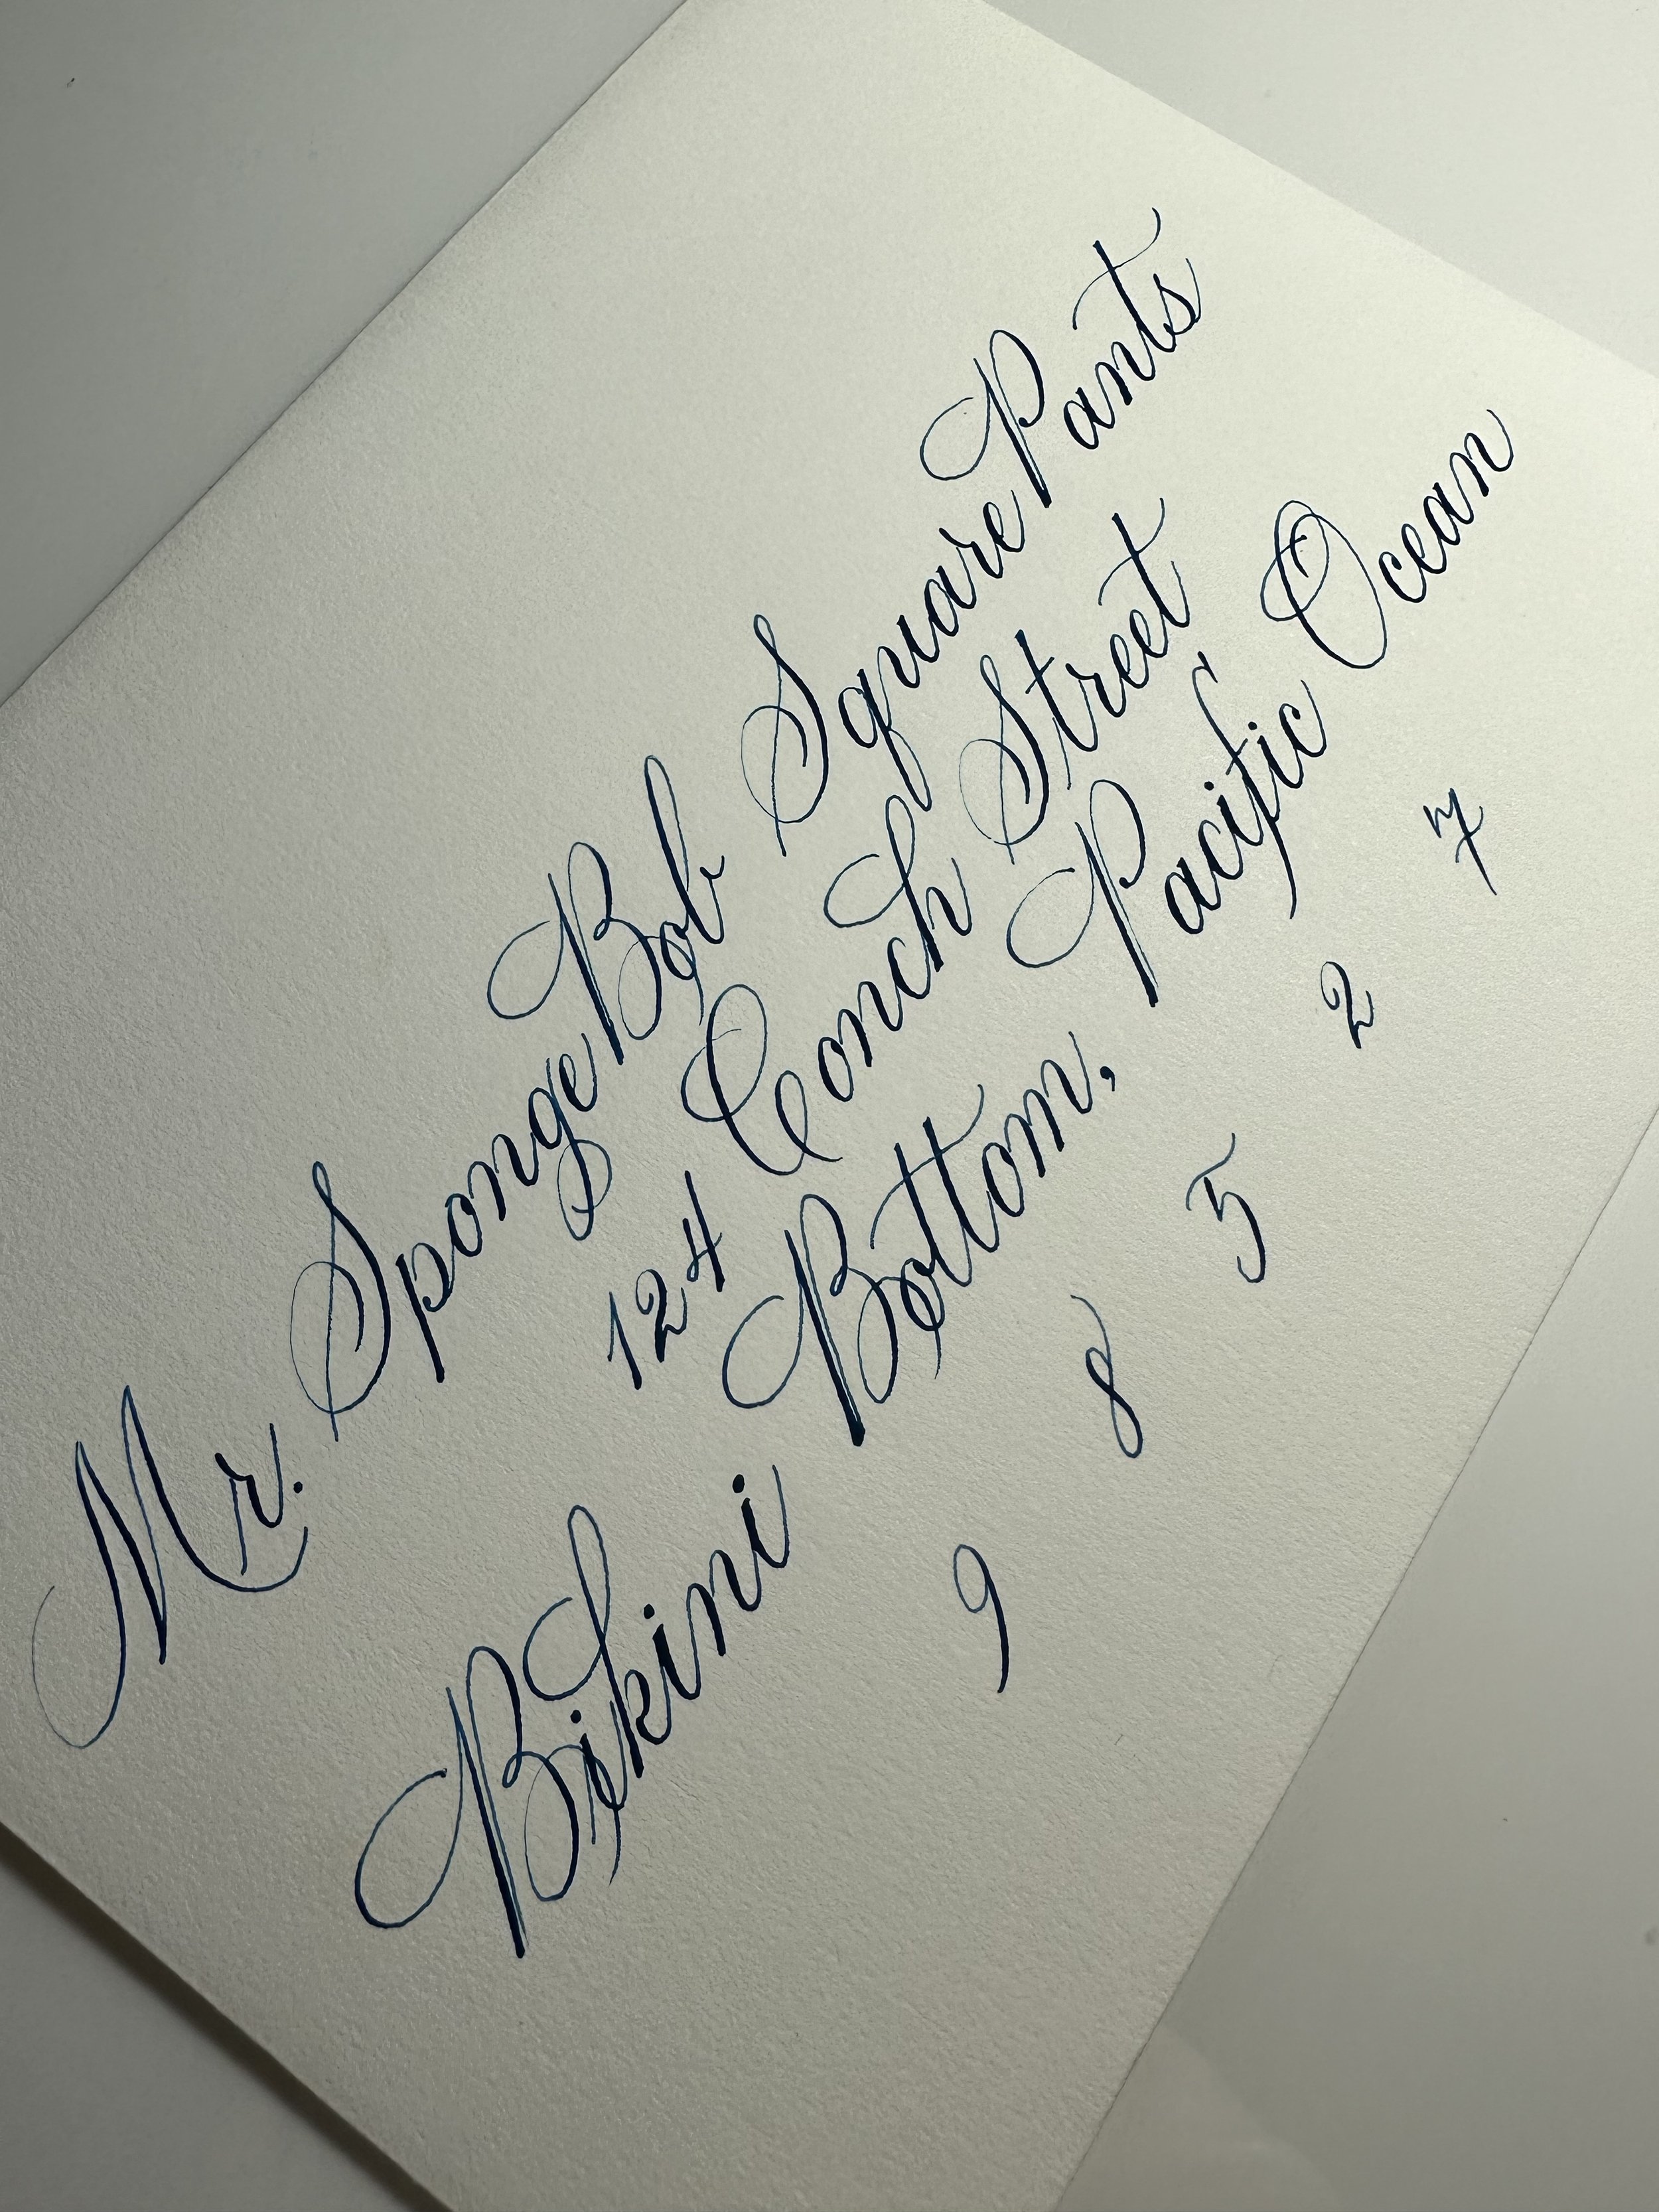 Mr. SpongeBob SquarePants
124 Conch Street
Bikini Bottom, Pacific Ocean
9 8 5 2 7